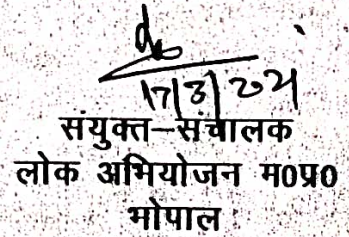 17/3/2021
संयुक्त–संचालक
लोक अभियोजन म0प्र0
भोपाल